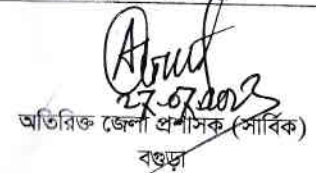 27.07.2023
অতিরিক্ত জেলা প্রশাসক (সার্বিক)
বগুড়া